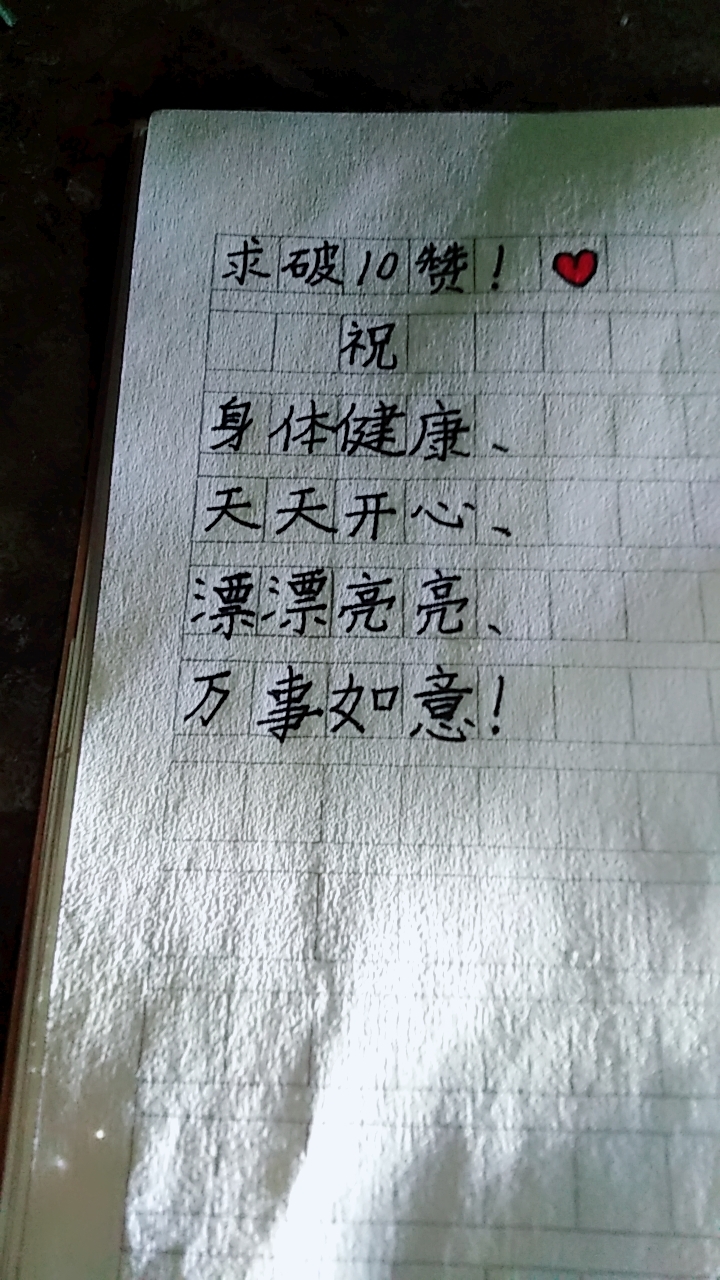 求破10赞！❤
祝
身体健康、
天天开心、
漂漂亮亮、
万事如意！